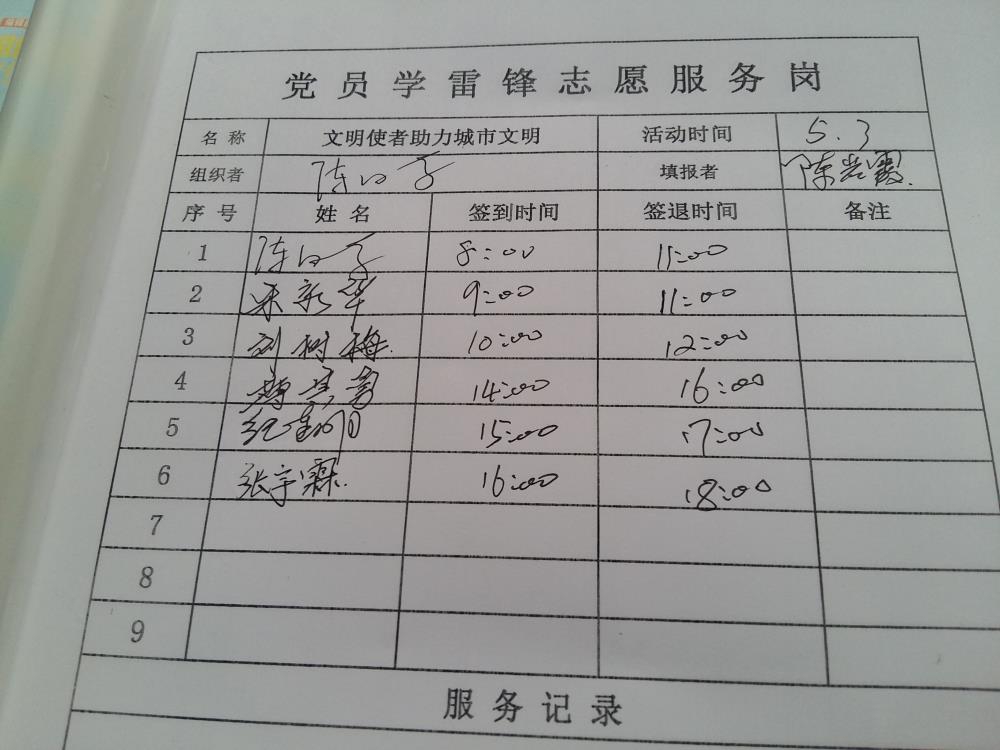 党员学雷锋志愿服务岗
名称 文明使者助力城市文明 活动时间 5.3
组织者 填报者 陈岩霞
序号 姓名 签到时间 签退时间 备注
1 8:00 11:00
2 新华 9:00 11:00
3 刘树梅 10:00 12:00
4 14:00 16:00
5 15:00 17:00
6 张宇霖 16:00 18:00
7
8
9
服务记录